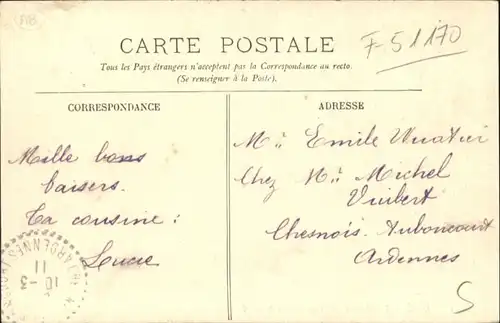 F 51170
CARTE POSTALE
Tous les Pays étrangers n'acceptent pas la Correspondance au recto.
(Se renseigner à la Poste).
CORRESPONDANCE
Mille bons
baisers.
Ta cousine :
Lucie
ADRESSE
Mr Emile
Chez Mr Michel
Vuibert
Chesnois. Auboncourt
Ardennes
10-3
11
ARDENNES
S